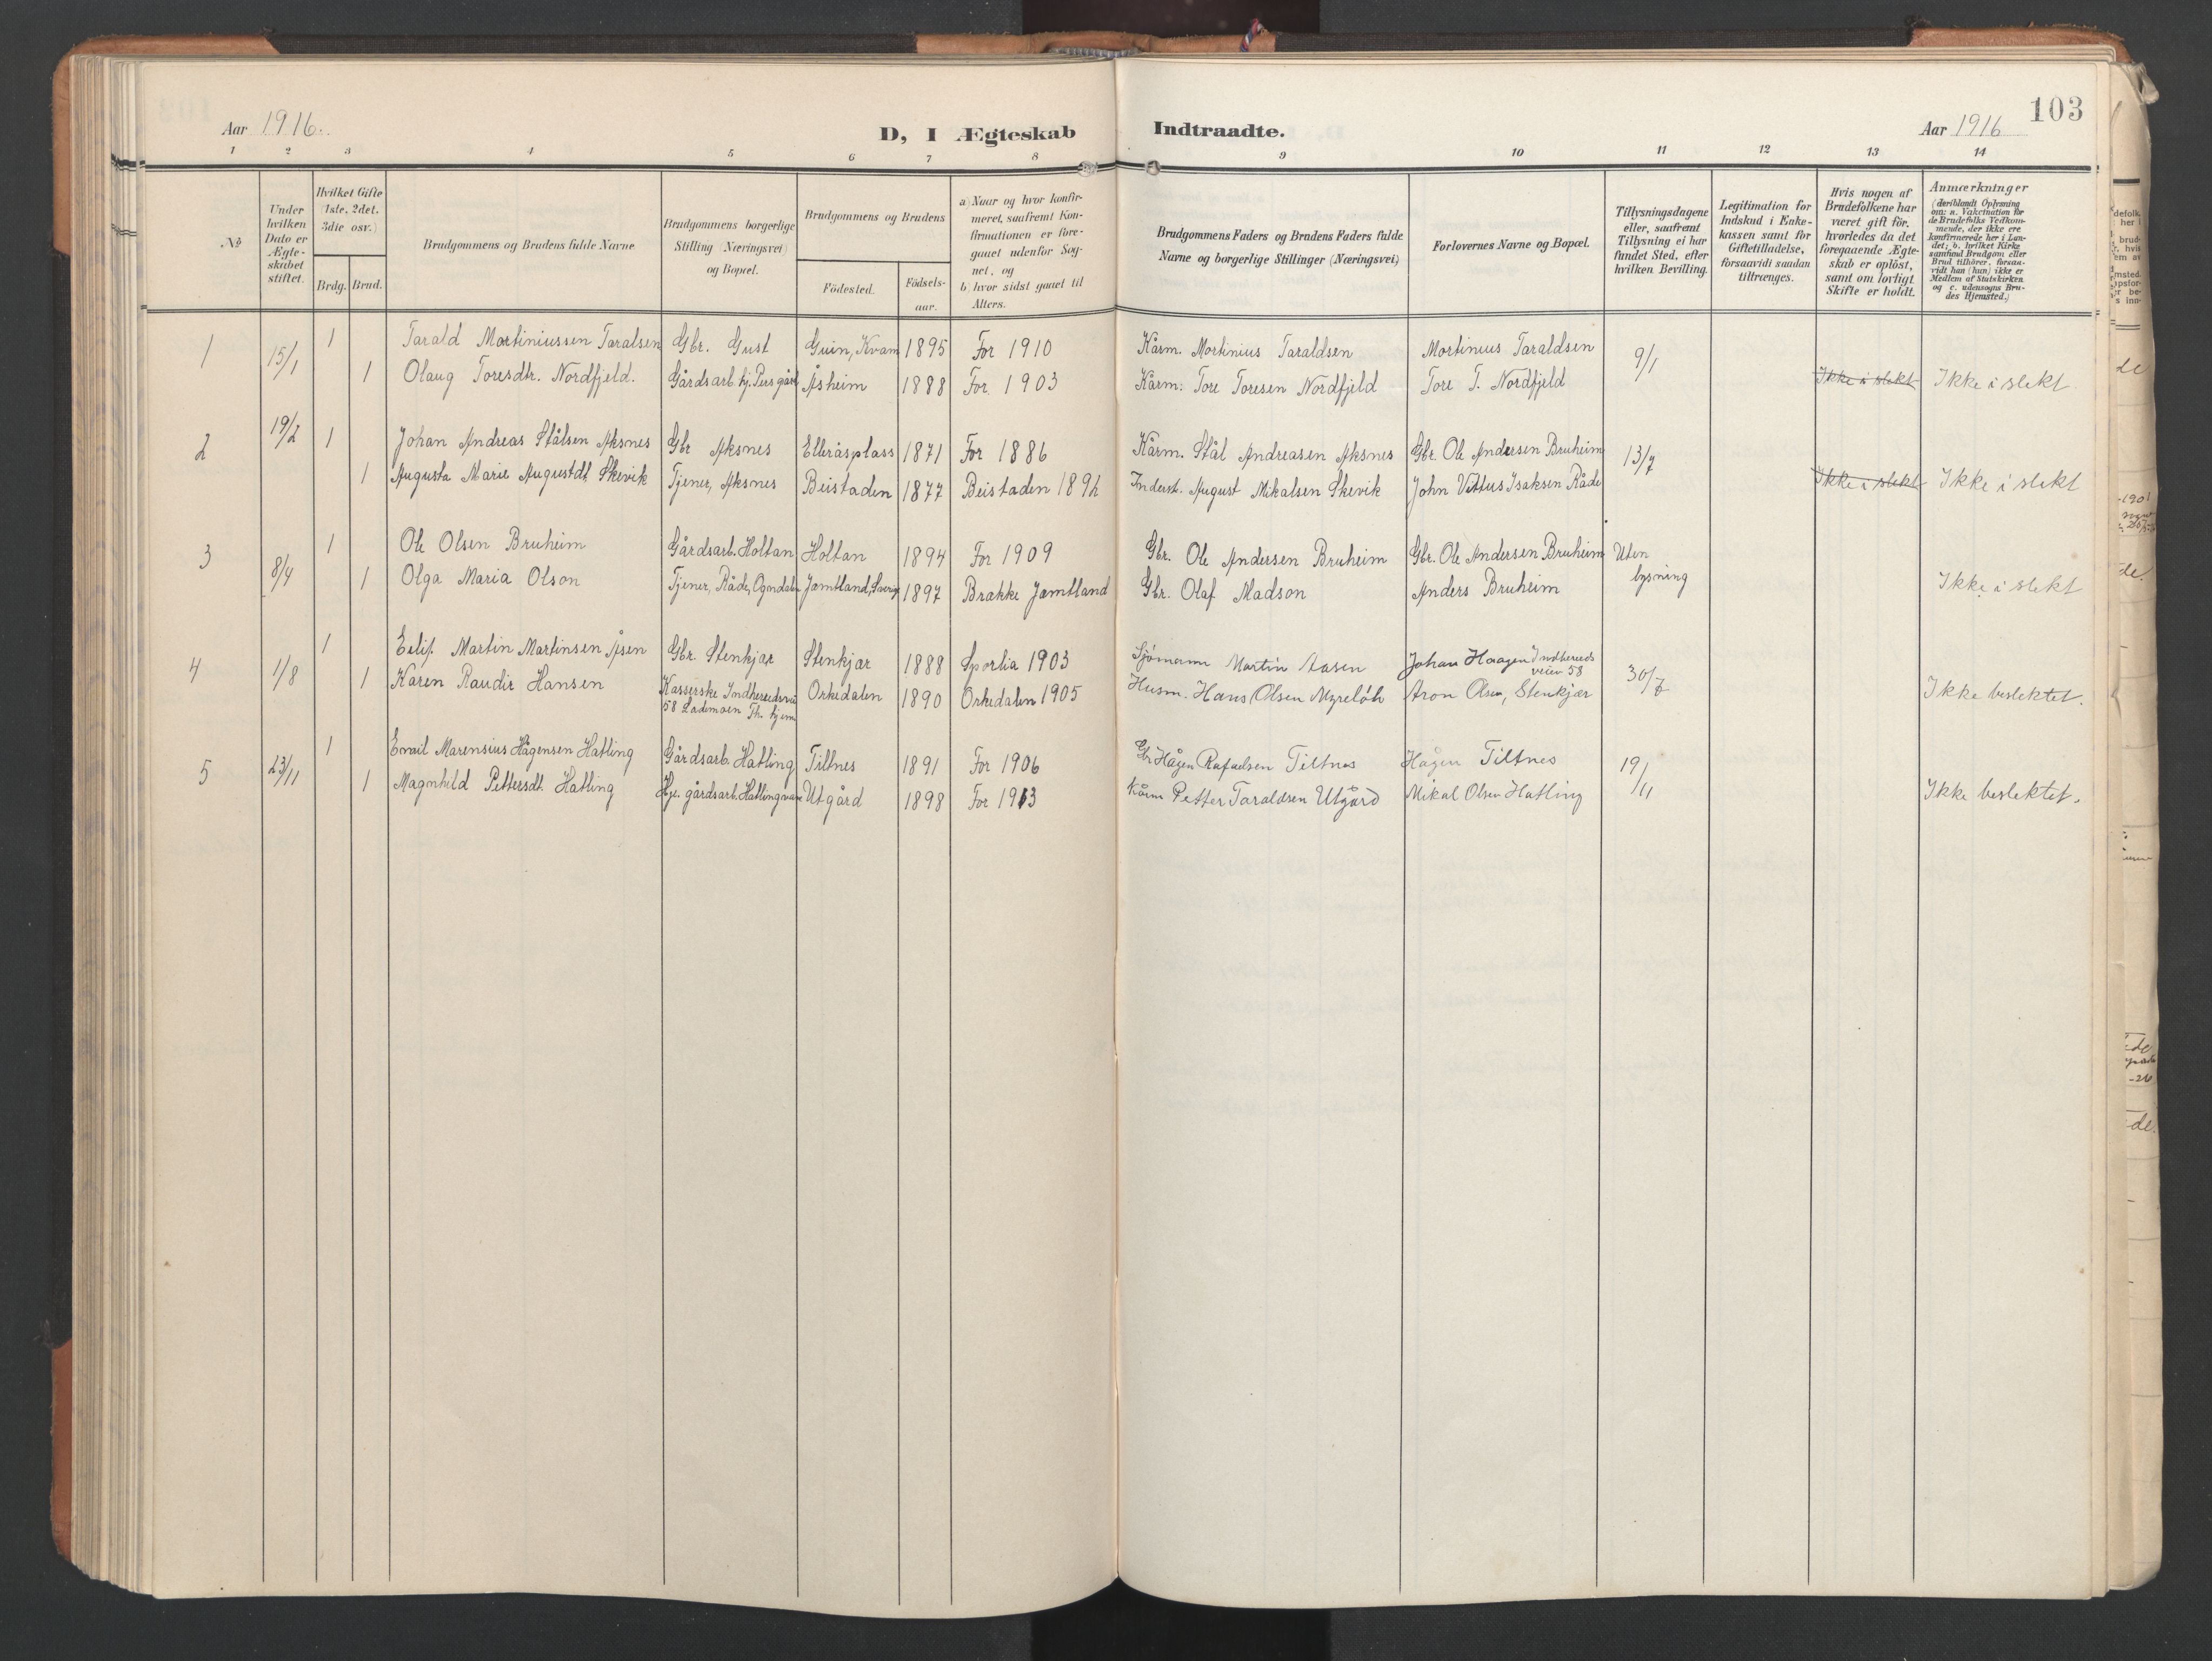 103
Aar 1916.
D, I Ægteskab
Indtraadte.
Aar 1916
1 2 3 4 5 6 7 8
9 10 11 12 13 14
№
Under hvilken Dato er Ægteskabet stiftet.
Hvilket Gifte (1ste, 2det. 3die osv.)
Brdg. Brud.
Brudgommens og Brudens fulde Navne
Brudgommens borgerlige Stilling (Næringsvei) og Bopæl.
Brudgommens og Brudens
Födested.
Födselsaar.
a) Naar og hvor konfirmeret, saafremt Konfirmationen er foregaaet udenfor Sognet, og
b) hvor sidst gaaet til Alters.
Brudgommens Faders og Brudens Faders fulde Navne og borgerlige Stillinger (Næringsvei)
Forlovernes Navne og Bopæl.
Tillysningsdagene eller, saafremt Tillysning ei har fundet Sted, efter hvilken Bevilling.
Legitimation for Indskud i Enkekassen samt for Giftetilladelse, forsaavidt saadan tiltrænges.
Hvis nogen af Brudefolkene har været gift för, hvorledes da det foregaaende Ægteskab er oplöst, samt om lovligt Skifte er holdt.
Anmærkninger (deriblandt Oplysning om: a. Vakcination for de Brudefolks Vedkommende, der ikke ere konfirmerede her i Landet; b. hvilket Kirkesamfund Brudgom eller Brud tilhörer, forsaavidt han (hun) ikke er Medlem af Statskirken og c. udensogns Brudes Hjemsted.)
1 15/1 1 Tarald Martiniussen Taralsen Gbr. Gust Guin, Kvam 1895 For 1910 Kårm. Mortinius Taraldsen Mortinius Taraldsen 9/1
1 Olaug Toresdtr. Nordfjeld. Gårdsarb. hj. Pers gård Åsheim 1888 For 1903 Kårm. Tore Toresen Nordfjeld Tore T. Nordfjeld Ikke i slekt Ikke i slekt
2 19/2 1 Johan Andreas Stålsen Aksnes Gbr Aksnes Elleråsplass 1871 For 1886 Kårm. Stål Andreasen Aksnes Gbr. Ole Andersen Bruheim 13/7
1 Augusta Marie Augustdt. Skevik Tjener, Aksnes Beistaden 1877 Beistaden 1892 Inderst. August Mikalsen Skevik John Vittus Isaksen Råde Ikke i slekt Ikke i slekt
3 8/4 1 Ole Olsen Bruheim Gårdsarb. Holtan Holtan 1894 For 1909 Gbr. Ole Andersen Bruheim Gbr. Ole Andersen Bruheim Uten lysning
1 Olga Maria Olson Tjener, Råde, Ogndalen Jamtland, Sverige 1897 Brakke Jamtland Gbr. Olaf Madson Anders Bruheim Ikke i slekt
4 1/8 1 Eilif Martin Martinsen Åsen Gbr. Stenkjær Stenkjær 1888 Sparbu 1903 Sjömann Martin Aasen Johan Haagen Indhereds veien 58 30/7
1 Karen Randir Hansen Kasserske Indheredsvei 58 Lademoen Th. hjem Orkedalen 1890 Orkedalen 1905 Husm. Hans Olsen Myrelöb Aron Olsen, Stenkjær Ikke beslektet.
5 23/11 1 Emil Marensius Hågensen Hatling Gårdsarb. Hatling Tiltnes 1891 For 1906 Gbr Hågen Rafaelsen Tiltnes Hågen Tiltnes 19/11
1 Magnhild Pettersdt. Hatling Hj. gårdsarb. Hatling 1898 Utgård For 1913 Kårm Petter Taraldsen Utgård Mikal Olsen Hatling Ikke beslektet.